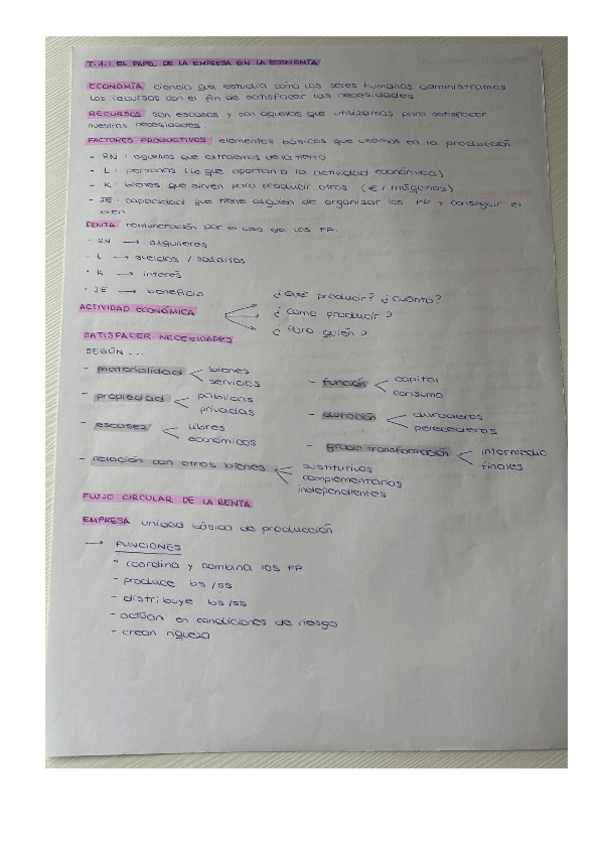 T.1.: EL PAPEL DE LA EMPRESA EN LA ECONOMÍA
ECONOMÍA ciencia que estudia cómo los seres humanos administramos
los recursos con el fin de satisfacer las necesidades
RECURSOS son escasos y son aquellos que utilizamos para satisfacer
nuestras necesidades
FACTORES PRODUCTIVOS elementos básicos que usamos en la producción
- RN: aquellos que extraemos de la tierra
- L: personas (lo que aportan a la actividad económica)
- K: bienes que sirven para producir otros (€ / máquinas)
- JE: capacidad que tiene alguien de organizar los FP y conseguir el
bien
RENTA remuneración por el uso de los FP.
· RN → alquileres
· L → sueldos / salarios
· K → interés
· JE → beneficio
ACTIVIDAD ECONÓMICA
¿Qué producir? ¿Cuánto?
¿Cómo producir?
¿Para quién?
SATISFACER NECESIDADES
SEGÚN...
- materialidad
bienes
servicios
- propiedad
públicas
privadas
- escasez
libres
económicos
- relación con otros bienes
sustitutivos
complementarios
independientes
- función
capital
consumo
- duración
duraderos
perecederos
- grado transformación
intermedio
finales
FLUJO CIRCULAR DE LA RENTA
EMPRESA unidad básica de producción
→ FUNCIONES
- coordina y combina los FP
- produce bs/ss
- distribuye bs/ss
- actúan en condiciones de riesgo
- crean riqueza